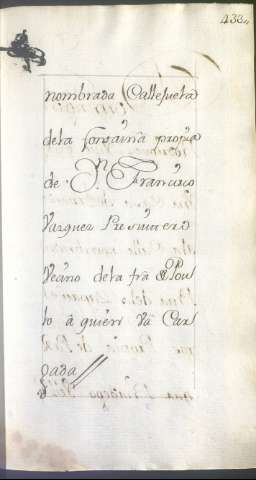 438
nombrada Callesueta
dela fontaina propia
de D.n Francisco
Vazquez Presvitero
Vecino de la fra
lo â quien va Car
gada